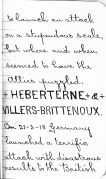 to launch an attack
on a stupendous scale,
but where and when
seemed to have the
Allies puzzled.
+ HEBERTERNE + &
VILLERS-BRITTENOUX.
On 21-3-18 Germany
launched a terrific
attack with disastrous
results to the British